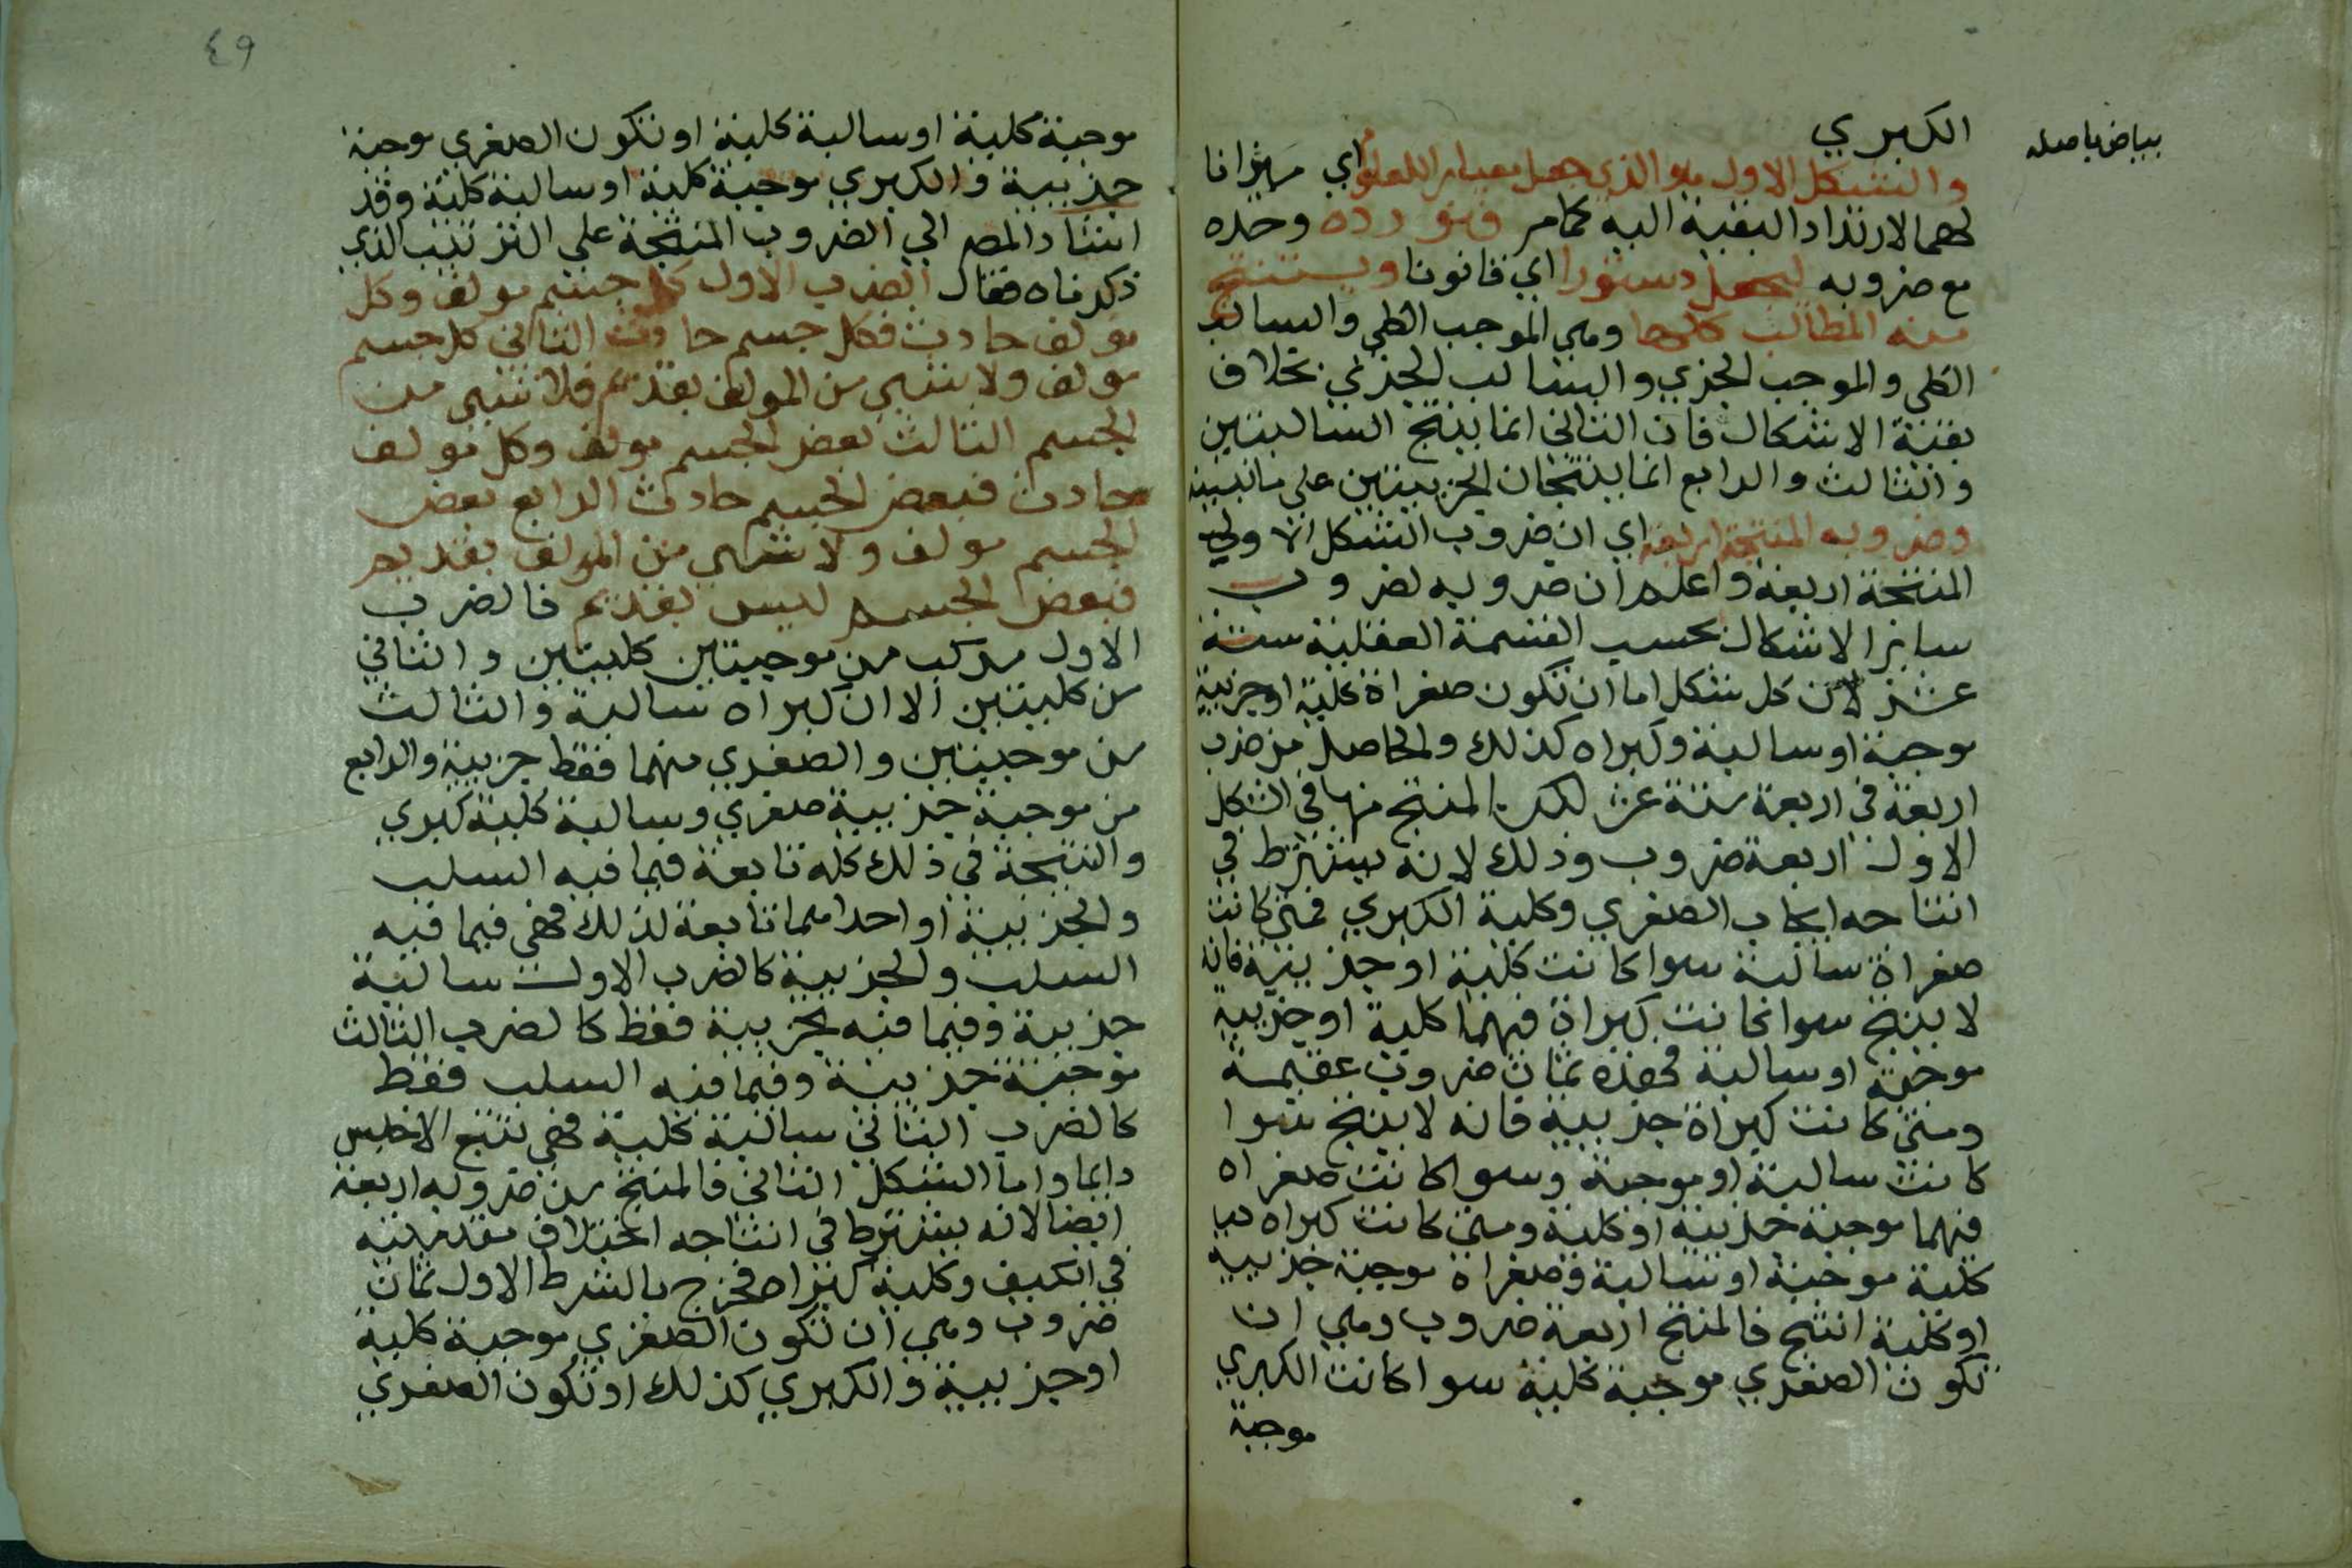 بياض باصله
الكبري
والشكل الاول هو الذي جعل معيار العلوم اي ميزانا
لهما لارتداد البقية اليه كما مر فنورده وحده
مع ضروبه ليجعل دستورا اي قانونا ويستنتج
منه المطالب كلها وهي الموجب الكلي والسالب
الكلي والموجب الجزي والسالب الجزئي بخلاف
بقية الاشكال فان الثاني انما ينتج السالبتين
والثالث والرابع انما ينتجان الجزييتين على ما نبينه
وضروبه المنتجة اربعة اي ان ضروب الشكل الاول
المنتجة اربعة واعلم ان ضروبه لضروب
ساير الاشكال بحسب القسمة العقلية ستة
عشر لان كل شكل اما ان تكون صغراة كلية او جزيية
موجبة او سالبة وكبراه كذلك والحاصل من ضرب
اربعة في اربعة ستة عشر لكن المنتج منها في الشكل
الاول اربعة ضروب وذلك لانه يشترط في
انتاجه ايجاب الصغري وكلية الكبري فمتي كانت
صغراة سالبة سوا كانت كلية او جزيية فانه
لا ينتج سوا كانت كبراة فيهما كلية او جزيية
موجبة او سالبة فهذه ثمان ضروب عقيمة
ومتي كانت كبراة جزيية فانه لا ينتج سوا
كانت سالبة او موجبة وسوا كانت صغراه
فيهما موجبة جزيية او كلية ومتي كانت كبراه
كلية موجبة او سالبة وصغراة موجبة جزيية
او كلية انتج فالمنتج اربعة ضروب وهي ان
تكون الصغري موجبة كلية سوا كانت الكبري
موجبة
٤٩
موجبة كلية او سالبة كلية او تكون الصغري موجبة
جزيية والكبري موجبة كلية او سالبة كلية وقد
اشار المص الي الضروب المنتجة على الترتيب الذي
ذكرناه فقال الضرب الاول كل جسم مولف وكل
مولف حادث فكل جسم حادث الثاني كل جسم
مولف ولا شي من المولف بقديم فلا شي من
الجسم الثالث بعض الجسم مولف وكل مولف
حادث فبعض الجسم حادث الرابع بعض
الجسم مولف ولا شي من المولف بقديم
فبعض الجسم ليس بقديم فالضرب
الاول مركب من موجبتين كليتين والثاني
من كليتين الا ان كبراه سالبة والثالث
من موجبتين والصغري منهما فقط جزيية والرابع
من موجبة جزيية صغري وسالبة كلية كبري
والنتيجة في ذلك كله تابعة فيما فيه السلب
والجزيية او احداهما تابعة لذلك فهي فيما فيه
السلب والجزيية كالضرب الاول سالبة
جزيية وفيما فيه الجزيية فقط كالضرب الثالث
موجبة جزيية وفيما فيه السلب فقط
كالضرب الثاني سالبة كلية فهي تتبع الاخس
دايما واما الشكل الثاني فالمنتج من ضروبه اربعة
ايضا لانه يشترط في انتاجه اختلاف مقدمتيه
في الكيف وكلية كبراه فخرج بالشرط الاول ثمان
ضروب وهي ان تكون الصغري موجبة كلية
او جزيية والكبري كذلك او تكون الصغري